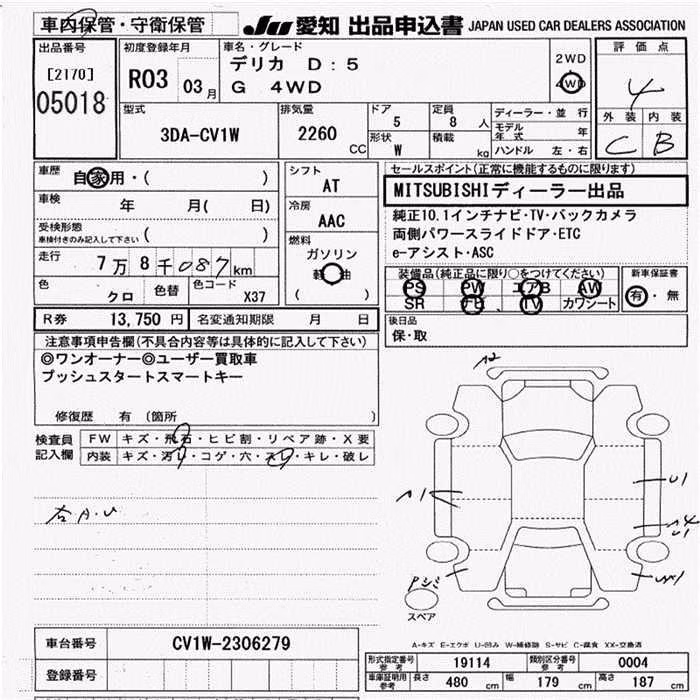 車内保管・守衛保管
JU 愛知 出品申込書 JAPAN USED CAR DEALERS ASSOCIATION
出品番号
[2170]
05018
初度登録年月
R03 03月
車名・グレード
デリカ D:5
G 4WD
2WD
4WD
評価点
4
外装 内装
C B
型式
3DA-CV1W
排気量
2260 CC
ドア
5
形状
W
定員
8 人
積載
kg
ディーラー・並行
モデル年式 年
ハンドル 左・右
車歴
自家用・( )
車検
年 月( 日)
受検形態
車検付きのみ記入して下さい ( )
走行
7万8千087km
色
クロ
色替
色コード
X37
シフト
AT
冷房
AAC
燃料
ガソリン
軽油
( )
セールスポイント(正常に機能するものに限ります)
MITSUBISHIディーラー出品
純正10.1インチナビ・TV・バックカメラ
両側パワースライドドア・ETC
e-アシスト・ASC
装備品(純正品に限り○をつけてください)
PS PW エアB AW
SR ナビ TV カワシート
新車保証書
有・無
後日品
保・取
R券 13,750 円
名変通知期限 月 日
注意事項申告欄(不具合内容等は具体的に記入して下さい)
◎ワンオーナー◎ユーザー買取車
プッシュスタートスマートキー
修復歴 有 (箇所 )
検査員
記入欄
FW キズ・飛石・ヒビ割・リペア跡・X要
内装 キズ・汚レ・コゲ・穴・スレ・キレ・破レ
右A.U
A2
A1
U1
A4
U1
Pシミ
スペア
A-キズ E-エクボ U-凹み W-補修跡 S-サビ C-腐食 XX-交換済
車台番号
CV1W-2306279
登録番号
形式指定番号
参考
19114
類別区分番号
参考
0004
車庫証明用
参考
長さ 480 cm
幅 179 cm
高さ 187 cm